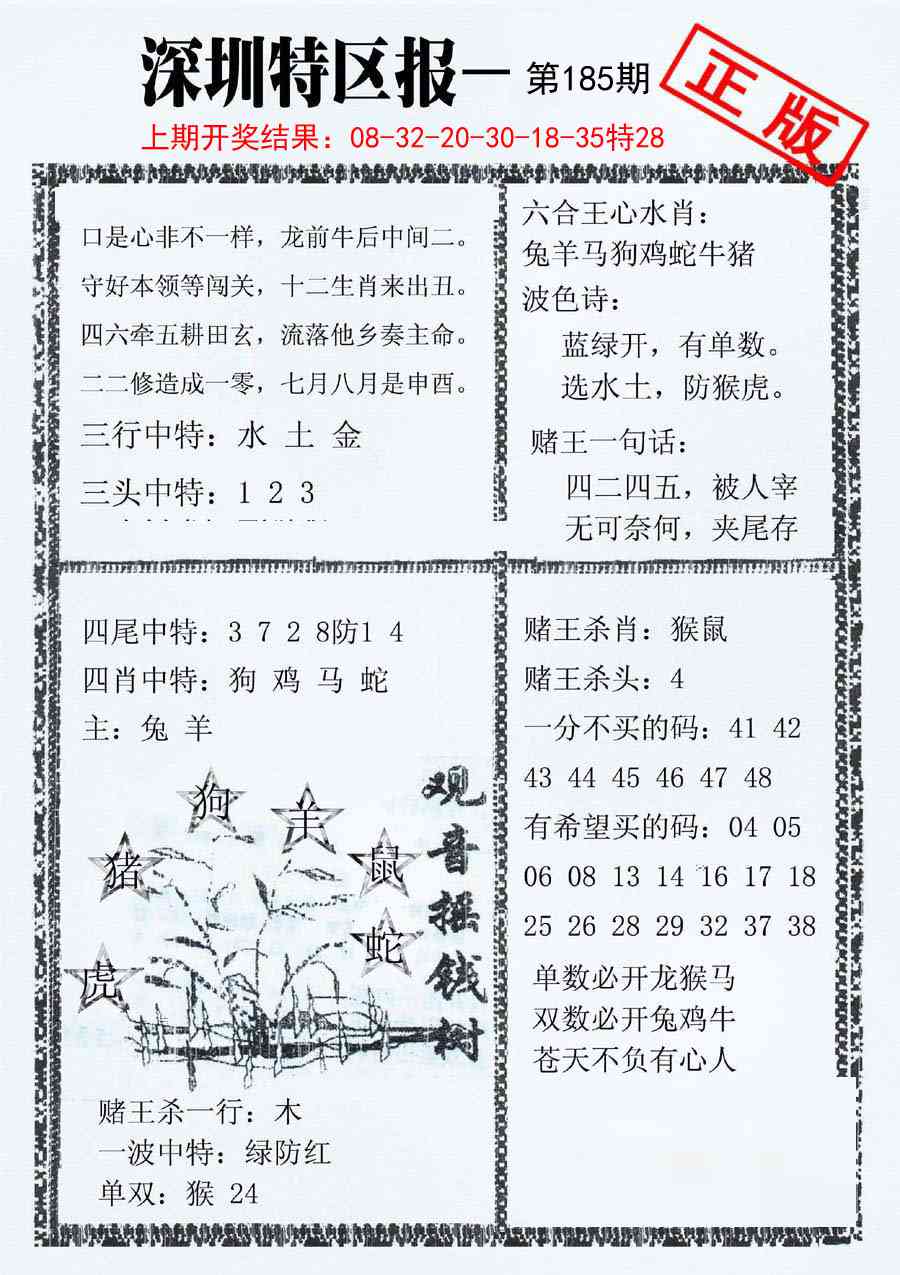 深圳特区报一 第185期
正版
上期开奖结果：08-32-20-30-18-35特28
口是心非不一样，龙前牛后中间二。
守好本领等闯关，十二生肖来出丑。
四六牵五耕田玄，流落他乡奏主命。
二二修造成一零，七月八月是申酉。
三行中特：水 土 金
三头中特：1 2 3
六合王心水肖：
兔羊马狗鸡蛇牛猪
波色诗：
蓝绿开，有单数。
选水土，防猴虎。
赌王一句话：
四二四五，被人宰
无可奈何，夹尾存
四尾中特：3 7 2 8防1 4
四肖中特：狗 鸡 马 蛇
主：兔 羊
狗
羊
猪
鼠
蛇
虎
观音摇钱树
赌王杀一行：木
一波中特：绿防红
单双：猴 24
赌王杀肖：猴鼠
赌王杀头：4
一分不买的码：41 42
43 44 45 46 47 48
有希望买的码：04 05
06 08 13 14 16 17 18
25 26 28 29 32 37 38
单数必开龙猴马
双数必开兔鸡牛
苍天不负有心人